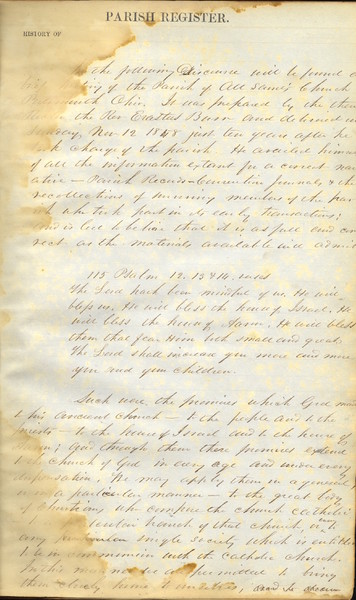 PARISH REGISTER.
HISTORY OF
the following Discourse will be found a
of the Parish of All Saints Church
Portsmouth Ohio. It was prepared by the then
the Rev Erastus Burr and delivered on
Sunday, Nov 12 1848 just ten years after he
took charge of the parish. He availed himself
of all the information extant for a correct narr
ative — Parish Records Convention Journals, & the
recollections of surviving members of the par
ish who took part in its early transactions;
and is to be believed that it is as full and cor
rect as the materials available will admit
115 Psalm 12. 13 & 14. verses
The Lord hath been mindful of us, He will
bless us, He will bless the house of Israel, He
will bless the house of Aaron, He will bless
them that fear Him both small and great;
The Lord shall increase you more and more
you and your children.
Such were the promises which God made
to his ancient church — to the people and to the
priests — to the house of Israel and to the house of
Aaron; and through them these promises extend
to the church of God in every age and under every
dispensation. We may apply them in a general
in a particular manner — to the great body
of christians who compose the church catholic
branch of that church,
any particular single society which is entitled
to communion with the Catholic church.
In this may we be permitted to bring
them closely home to ourselves, and to